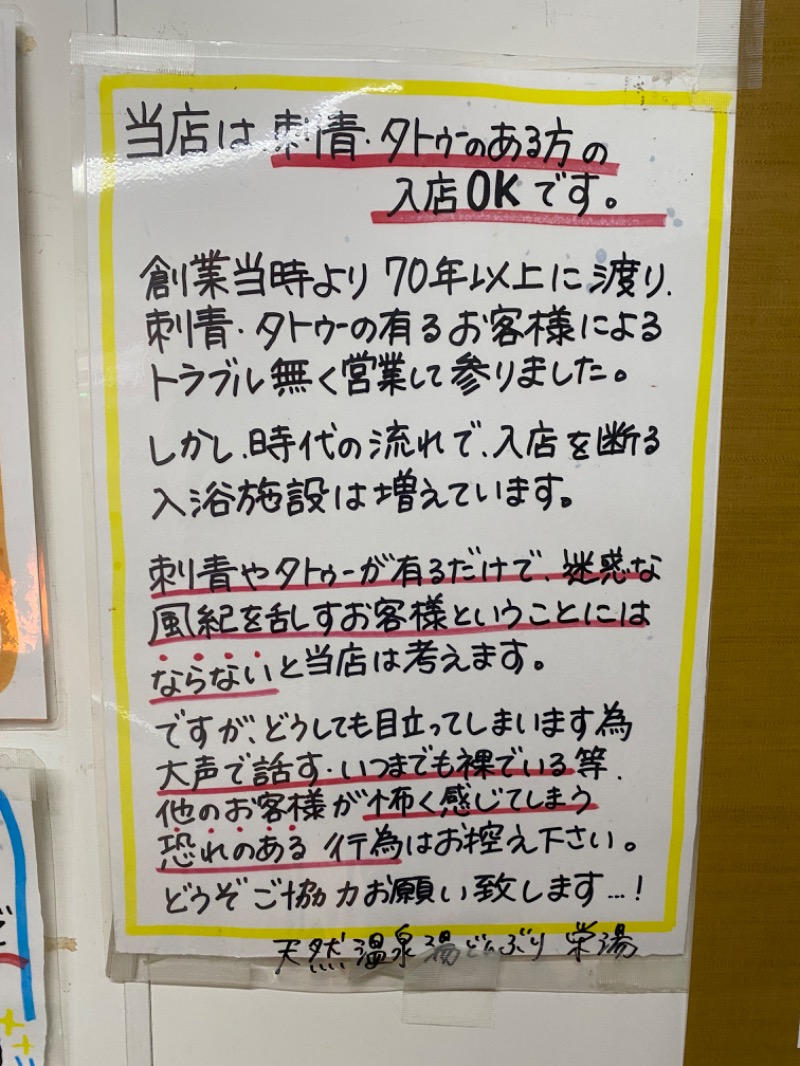 当店は刺青・タトゥーのある方の
入店OKです。
創業当時より70年以上に渡り、
刺青・タトゥーの有るお客様による
トラブル無く営業して参りました。
しかし、時代の流れで、入店を断る
入浴施設は増えています。
刺青やタトゥーが有るだけで、迷惑な
風紀を乱しすお客様ということには
ならないと当店は考えます。
ですが、どうしても目立ってしまいます為
大声で話す・いつまでも裸でいる等、
他のお客様が怖く感じてしまう
恐れのある行為はお控え下さい。
どうぞご協力お願い致します…!
天然温泉湯どんぶり栄湯